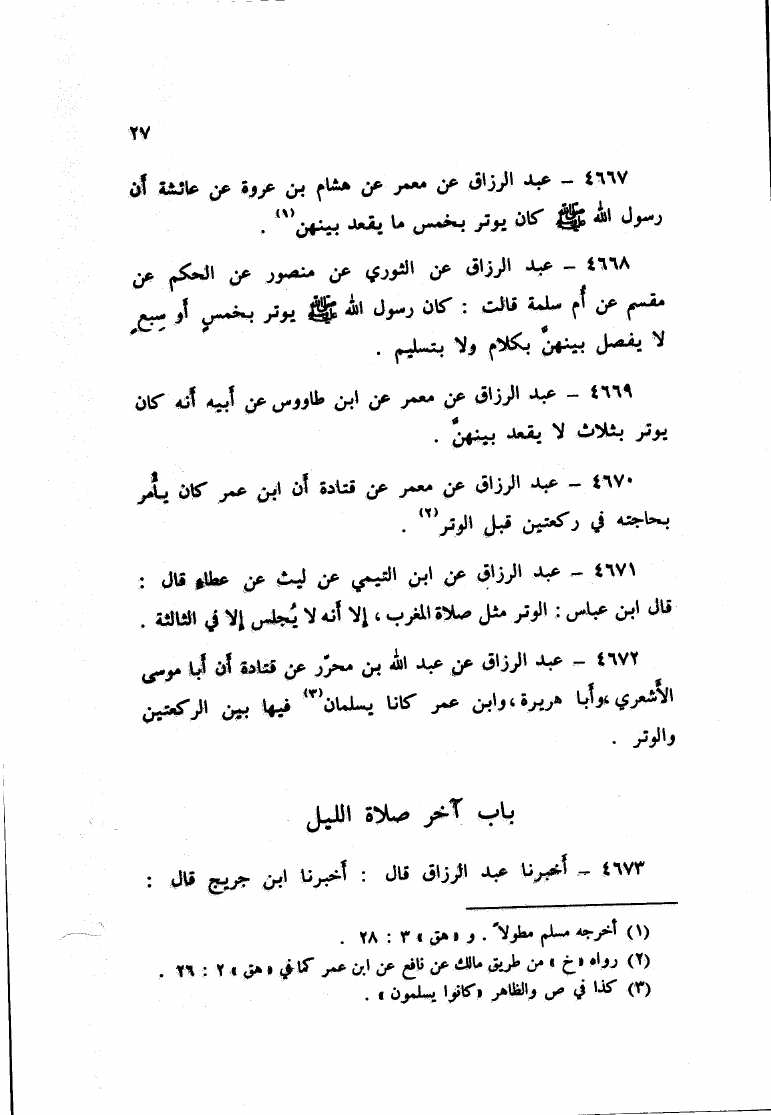 ٢٧
٤٦٦٧ – عبد الرزاق عن معمر عن هشام بن عروة عن عائشة أن
رسول الله ﷺ كان يوتر بخمس ما يقعد بينهن(١) .
٤٦٦٨ – عبد الرزاق عن الثوري عن منصور عن الحكم عن
مقسم عن أم سلمة قالت : كان رسول الله ﷺ يوتر بخمسٍ أو سبعٍ
لا يفصل بينهنَّ بكلام ولا بتسليم .
٤٦٦٩ – عبد الرزاق عن معمر عن ابن طاووس عن أبيه أنه كان
يوتر بثلاث لا يقعد بينهنَّ .
٤٦٧٠ – عبد الرزاق عن معمر عن قتادة أن ابن عمر كان يأمر
بحاجته في ركعتين قبل الوتر(٢) .
٤٦٧١ – عبد الرزاق عن ابن التيمي عن ليث عن عطاء قال :
قال ابن عباس : الوتر مثل صلاة المغرب ، إلا أنه لا يُجلس إلا في الثالثة .
٤٦٧٢ – عبد الرزاق عن عبد الله بن محرّر عن قتادة أن أبا موسى
الأشعري ،وأبا هريرة ،وابن عمر كانا يسلمان(٣) فيها بين الركعتين
والوتر .
باب آخر صلاة الليل
٤٦٧٣ – أخبرنا عبد الرزاق قال : أخبرنا ابن جريج قال :
(١) أخرجه مسلم مطولاً . و « هق » ٣ : ٢٨ .
(٢) رواه « خ » من طريق مالك عن نافع عن ابن عمر كما في « هق » ٢ : ٢٦ .
(٣) كذا في ص والظاهر «كانوا يسلمون» .